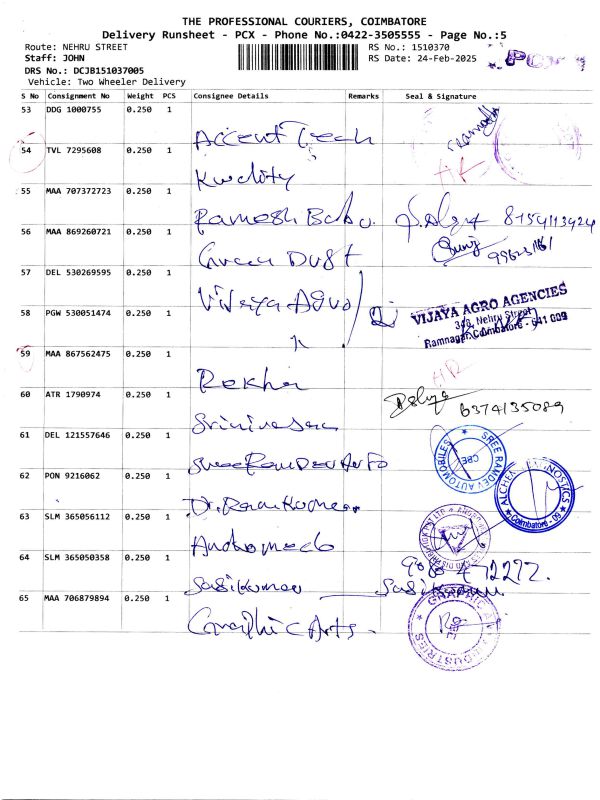 THE PROFESSIONAL COURIERS, COIMBATORE
Delivery Runsheet - PCX - Phone No.:0422-3505555 - Page No.:5
Route: NEHRU STREET
RS No.: 1510370
Staff: JOHN
RS Date: 24-Feb-2025
DRS No.: DCJB151037005
Vehicle: Two Wheeler Delivery
S No Consignment No Weight PCS Consignee Details Remarks Seal & Signature
53 DDG 1000755 0.250 1
Accent Tech
54 TVL 7295608 0.250 1
Kwality
55 MAA 707372723 0.250 1
Ramesh Babu. 8154113424
56 MAA 869260721 0.250 1
Green Dust
57 DEL 530269595 0.250 1
Vijaya Agro
VIJAYA AGRO AGENCIES
349, Nehru Street
Ramnagar, Coimbatore - 641 009
58 PGW 530051474 0.250 1
59 MAA 867562475 0.250 1
Rekha
60 ATR 1790974 0.250 1
6374135089
Srinivasan
61 DEL 121557646 0.250 1
SREE RAMDEV AUTOMOBILES
CBE
Sree Ramdev Auto
62 PON 9216062 0.250 1
Coimbatore - 09
Dr. Ramkumar
63 SLM 365056112 0.250 1
Andromeda
64 SLM 365050358 0.250 1
Sasikumar Sasikumar
65 MAA 706879894 0.250 1
GRAPHIC ARTS INDUSTRIES
CBE
Graphic Arts.